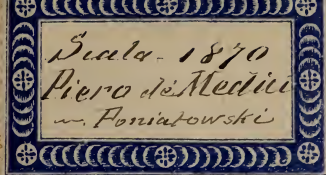 Scala - 1870
Piero de Medici
m. Poniatowski